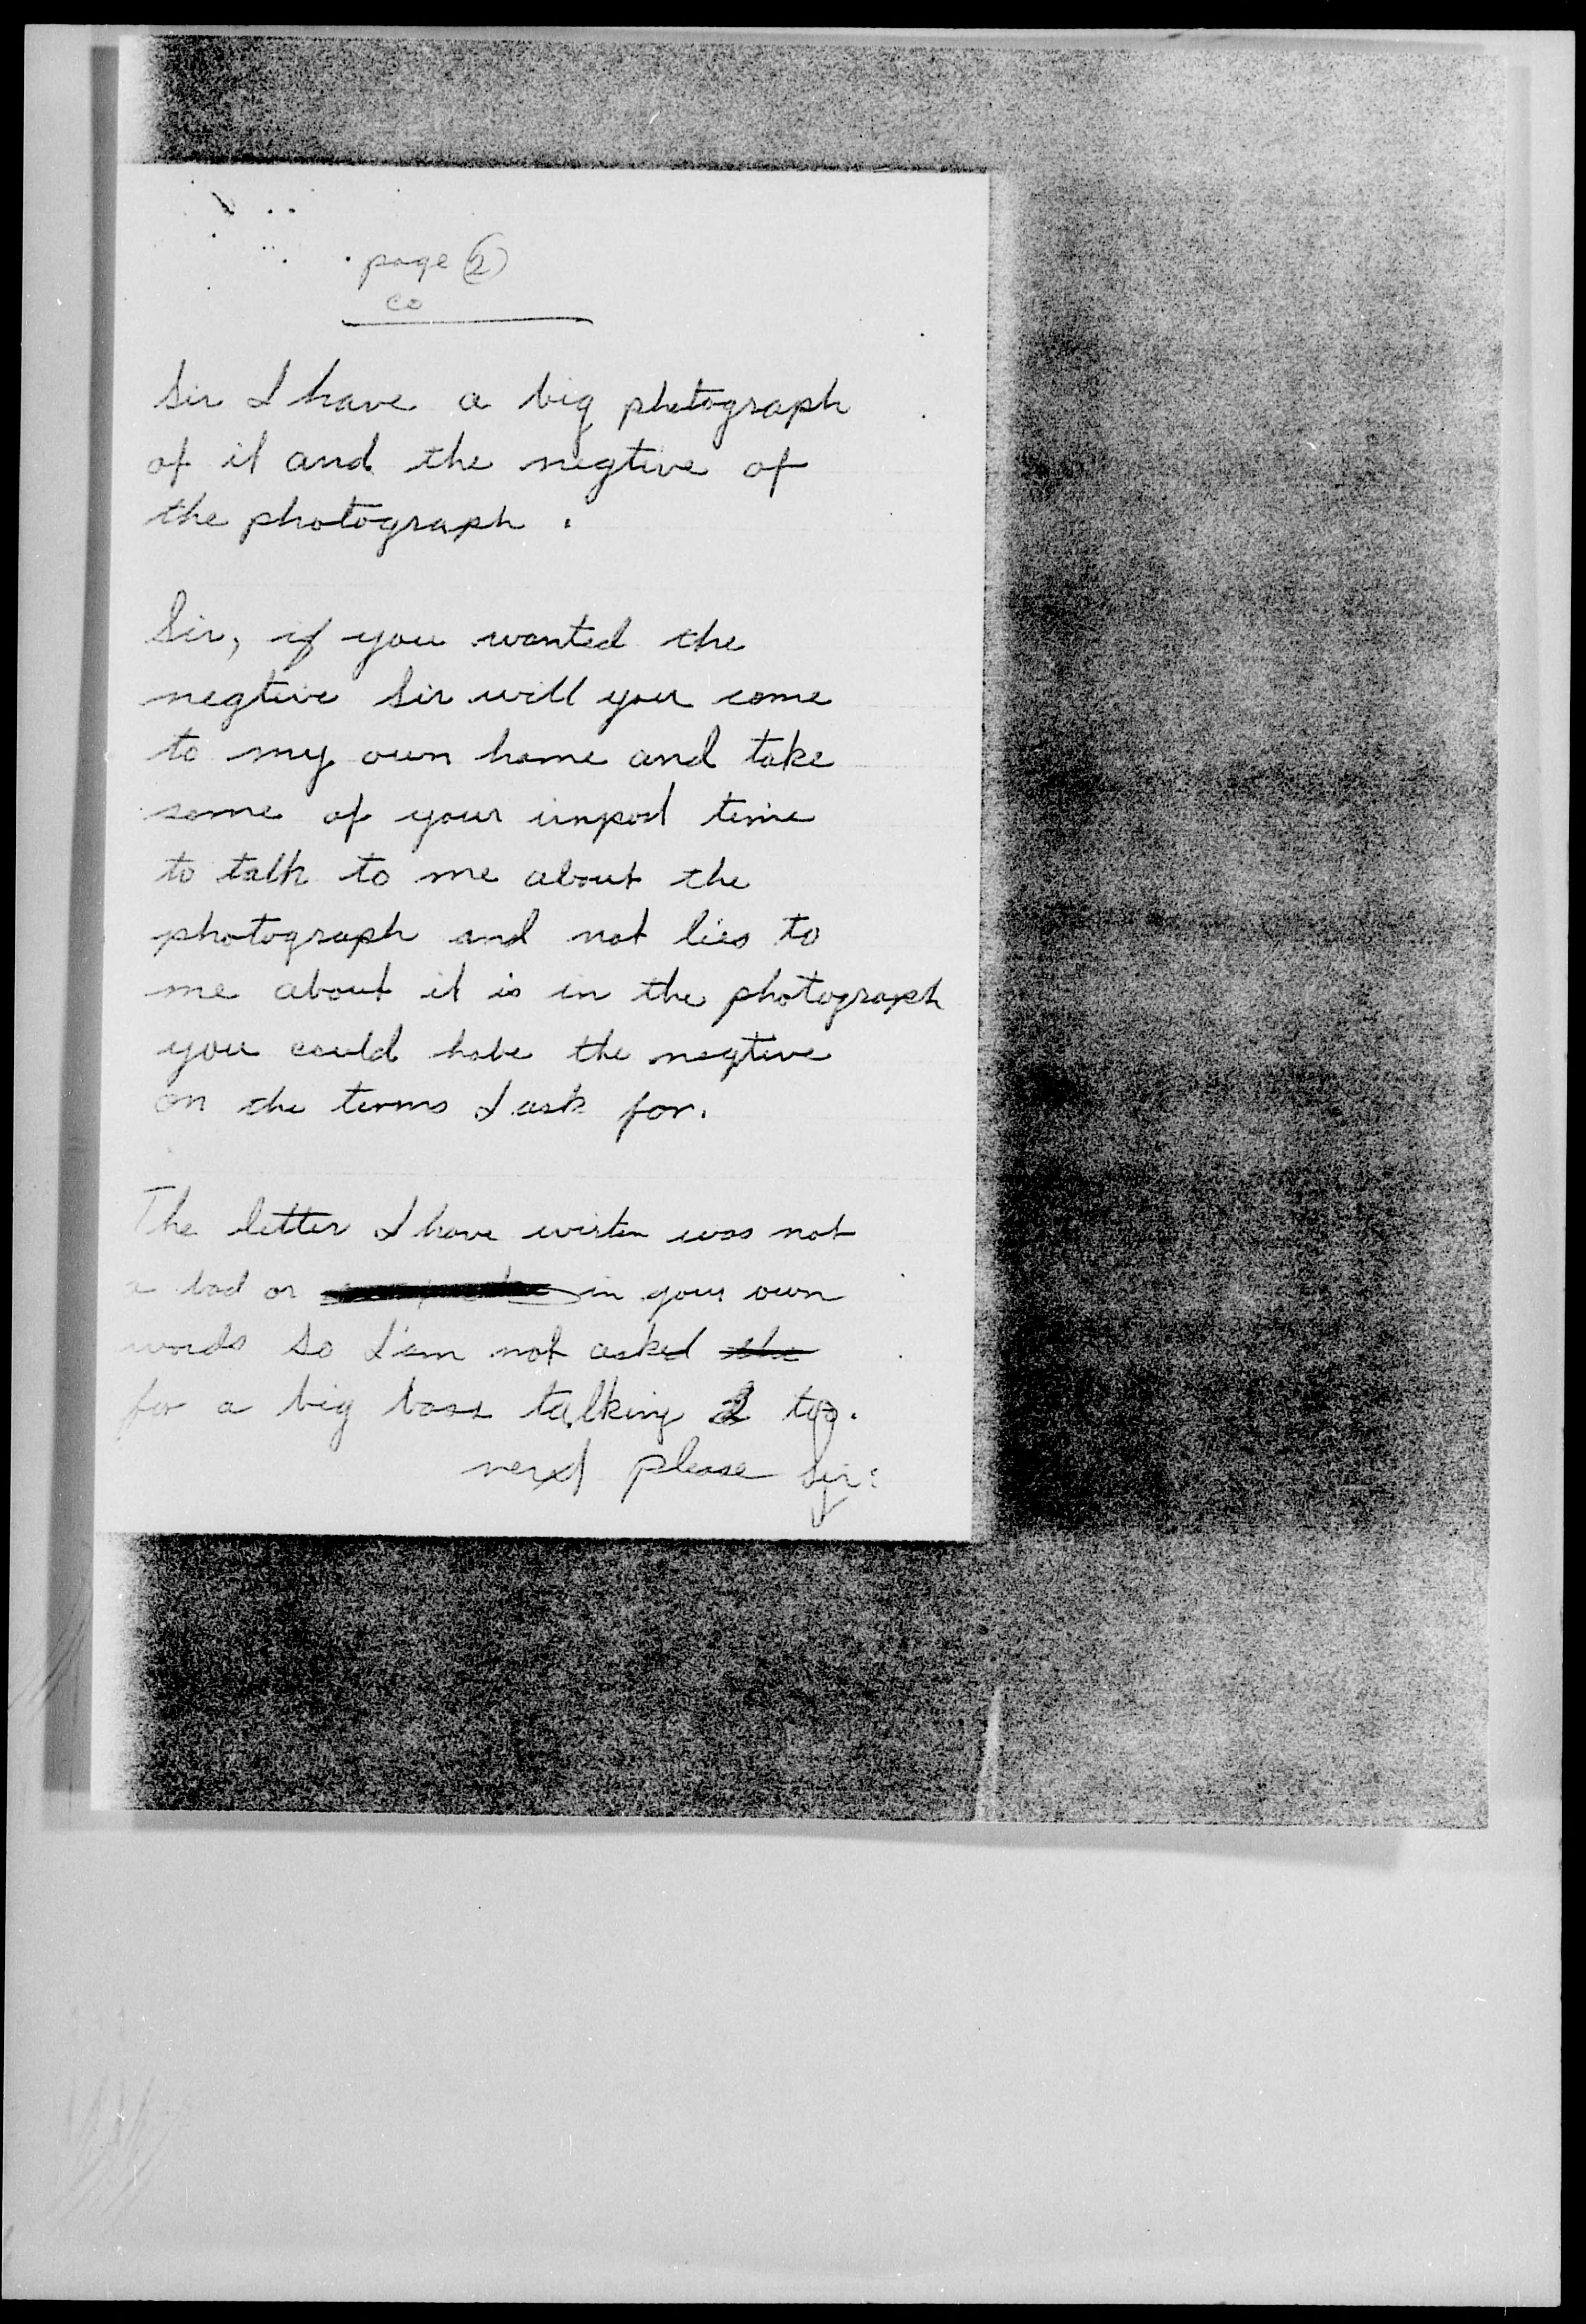 page (2)
co
Sir I have a big photograph
of it and the negtive of
the photograph.
Sir, if you wanted the
negtive Sir will you come
to my own home and take
some of your impod time
to talk to me about the
photograph and not lies to
me about it is in the photograph
you could habe the negtive
on the terms I ask for.
The letter I have wirten was not
a bad or in your own
words so I'am not asked the
for a big boss talking 2 too.
next please Sir: